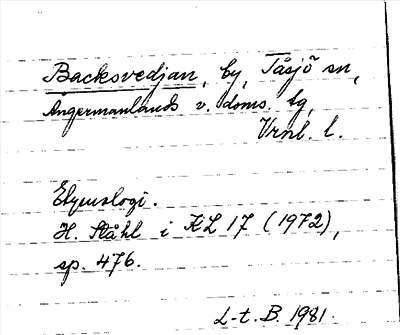 Backsvedjan, by, Tåsjö sn,
Ångermanlands v. doms. tg,
Vrnl. l.
Etymologi.
H. Ståhl i KL 17 (1972),
sp. 476.
L-t. B. 1981.